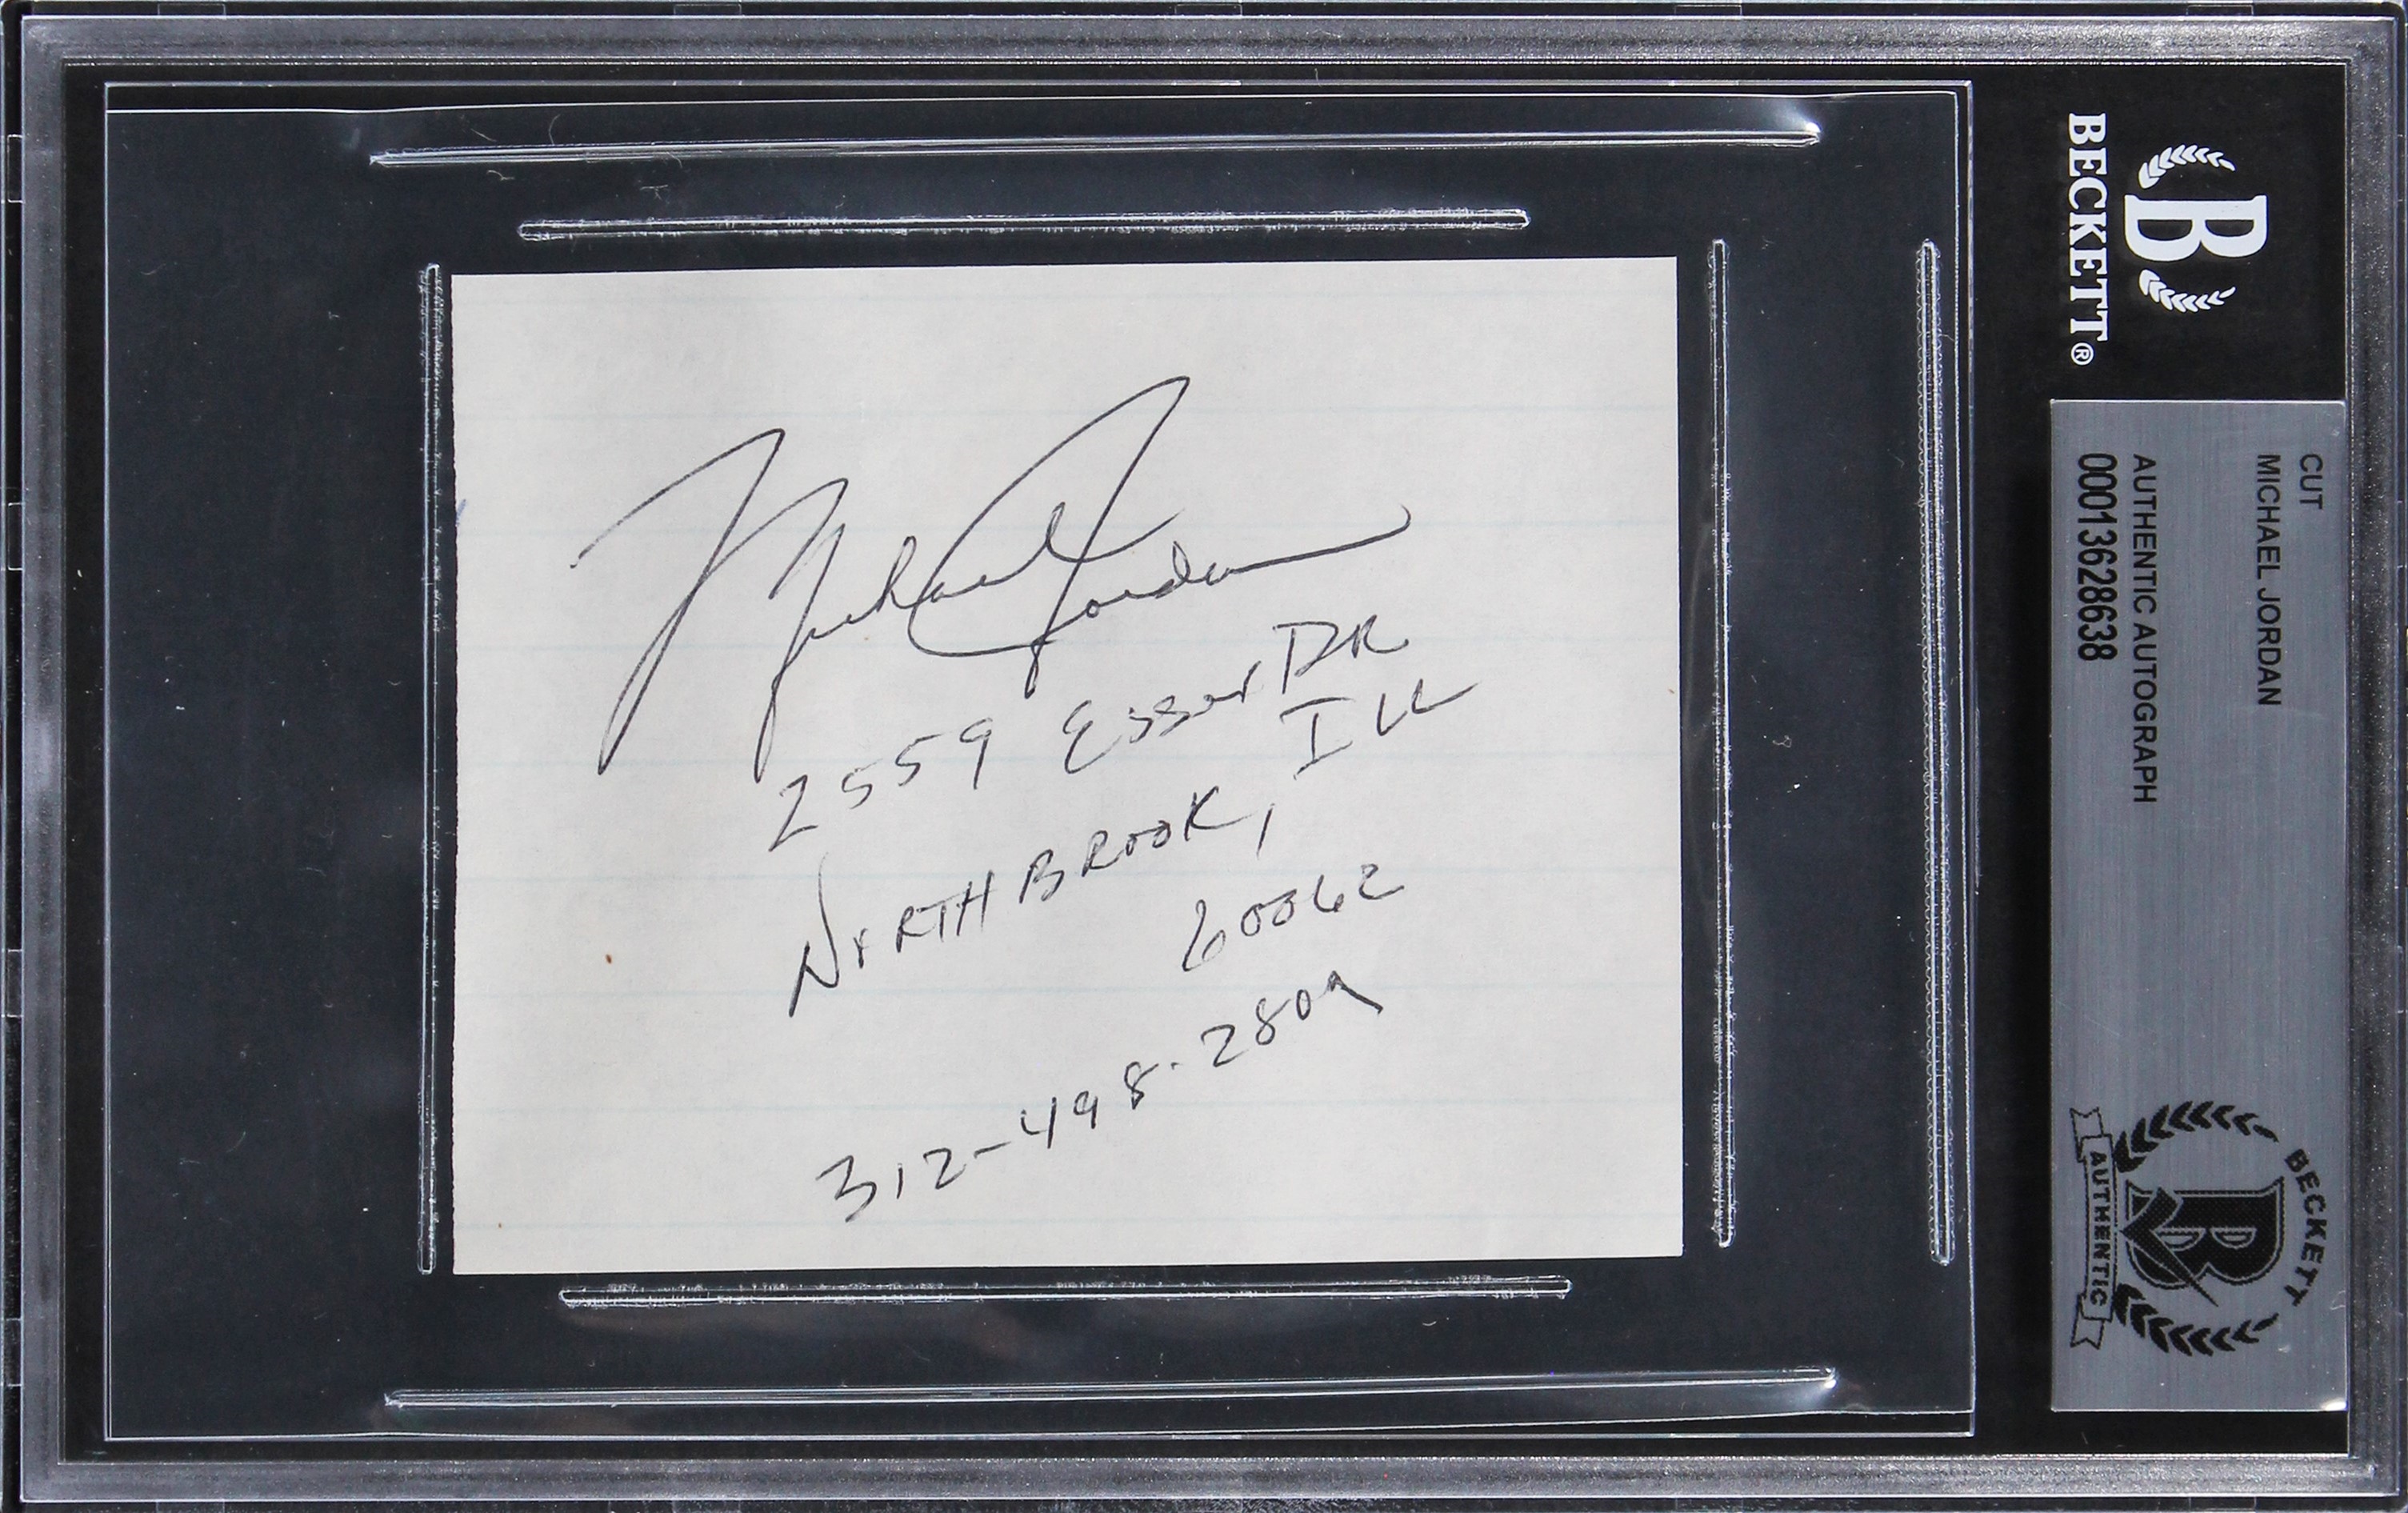 Michael Jordan
2559 Essex DR
NORTHBROOK, ILL
60062
312-498-2809
B
BECKETT®
CUT
MICHAEL JORDAN
AUTHENTIC AUTOGRAPH
00013628638
BECKETT
B
AUTHENTIC